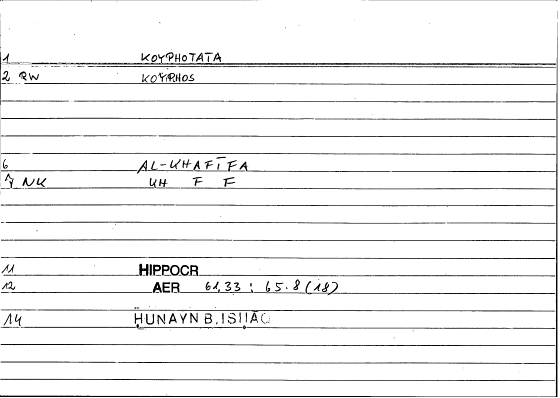 1 KOYPHOTATA
2 RW KOYPHOS
6 AL-KHAFĪFA
7 NK KH F F
11 HIPPOCR
12 AER 61,33 : 65.8 (18)
14 ḤUNAYN B. ISḤĀQ